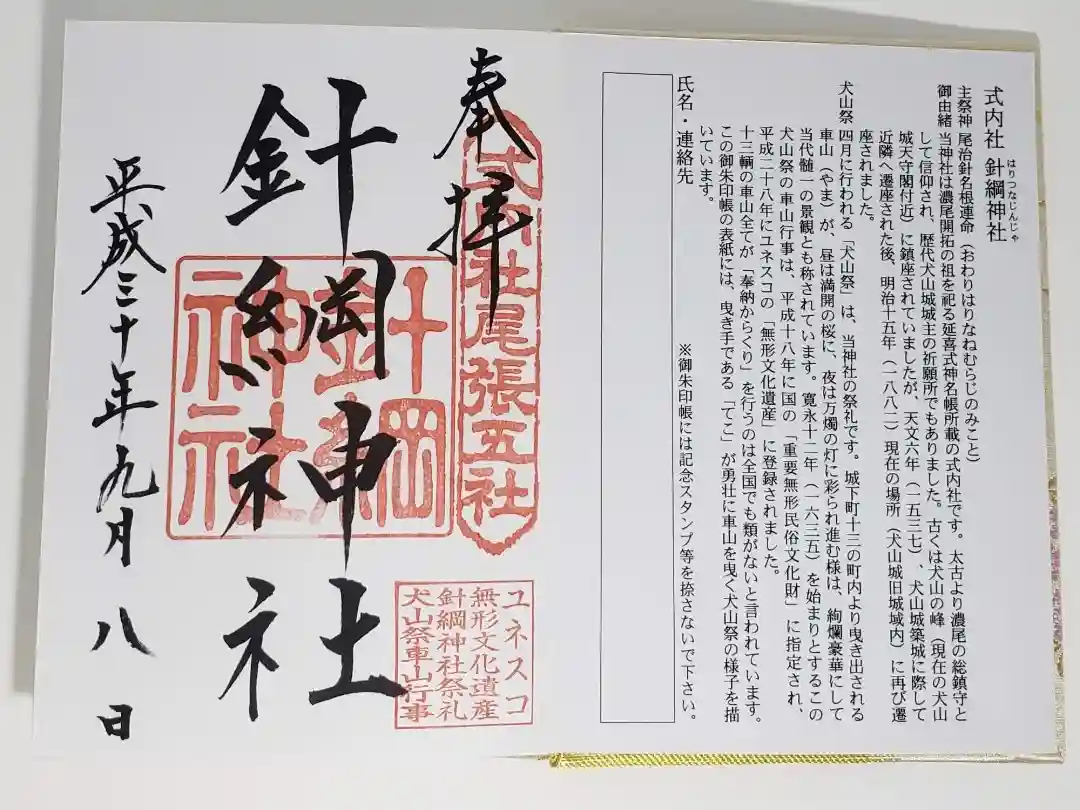 式内社 針綱神社
はりつなじんじゃ
主祭神 尾治針名根連命（おわりはりなねむらじのみこと）
御由緒 当神社は濃尾開拓の祖を祀る延喜式神名帳所載の式内社です。太古より濃尾の総鎮守と
して信仰され、歴代犬山城城主の祈願所でもありました。古くは犬山の峰（現在の犬山
城天守閣付近）に鎮座されていましたが、天文六年（一五三七）、犬山城築城に際して
近隣へ遷座された後、明治十五年（一八八二）現在の場所（犬山城旧城域内）に再び遷
座されました。
犬山祭 四月に行われる「犬山祭」は、当神社の祭礼です。城下町十三の町内より曳き出される
車山（やま）が、昼は満開の桜に、夜は万燭の灯に彩られ進む様は、絢爛豪華にして
当代髄一の景観とも称されています。寛永十二年（一六三五）を始まりとするこの
犬山祭の車山行事は、平成十八年に国の「重要無形民俗文化財」に指定され、
平成二十八年にユネスコの「無形文化遺産」に登録されました。
十三輌の車山全てが「奉納からくり」を行うのは全国でも類がないと言われています。
この御朱印帳の表紙には、曳き手である「てこ」が勇壮に車山を曳く犬山祭の様子を描
いています。
氏名・連絡先
※御朱印帳には記念スタンプ等を捺さないで下さい。
奉拝
式内社尾張五社
針綱神社
針綱
神社
ユネスコ
無形文化遺産
針綱神社祭礼
犬山祭車山行事
平成三十年九月八日